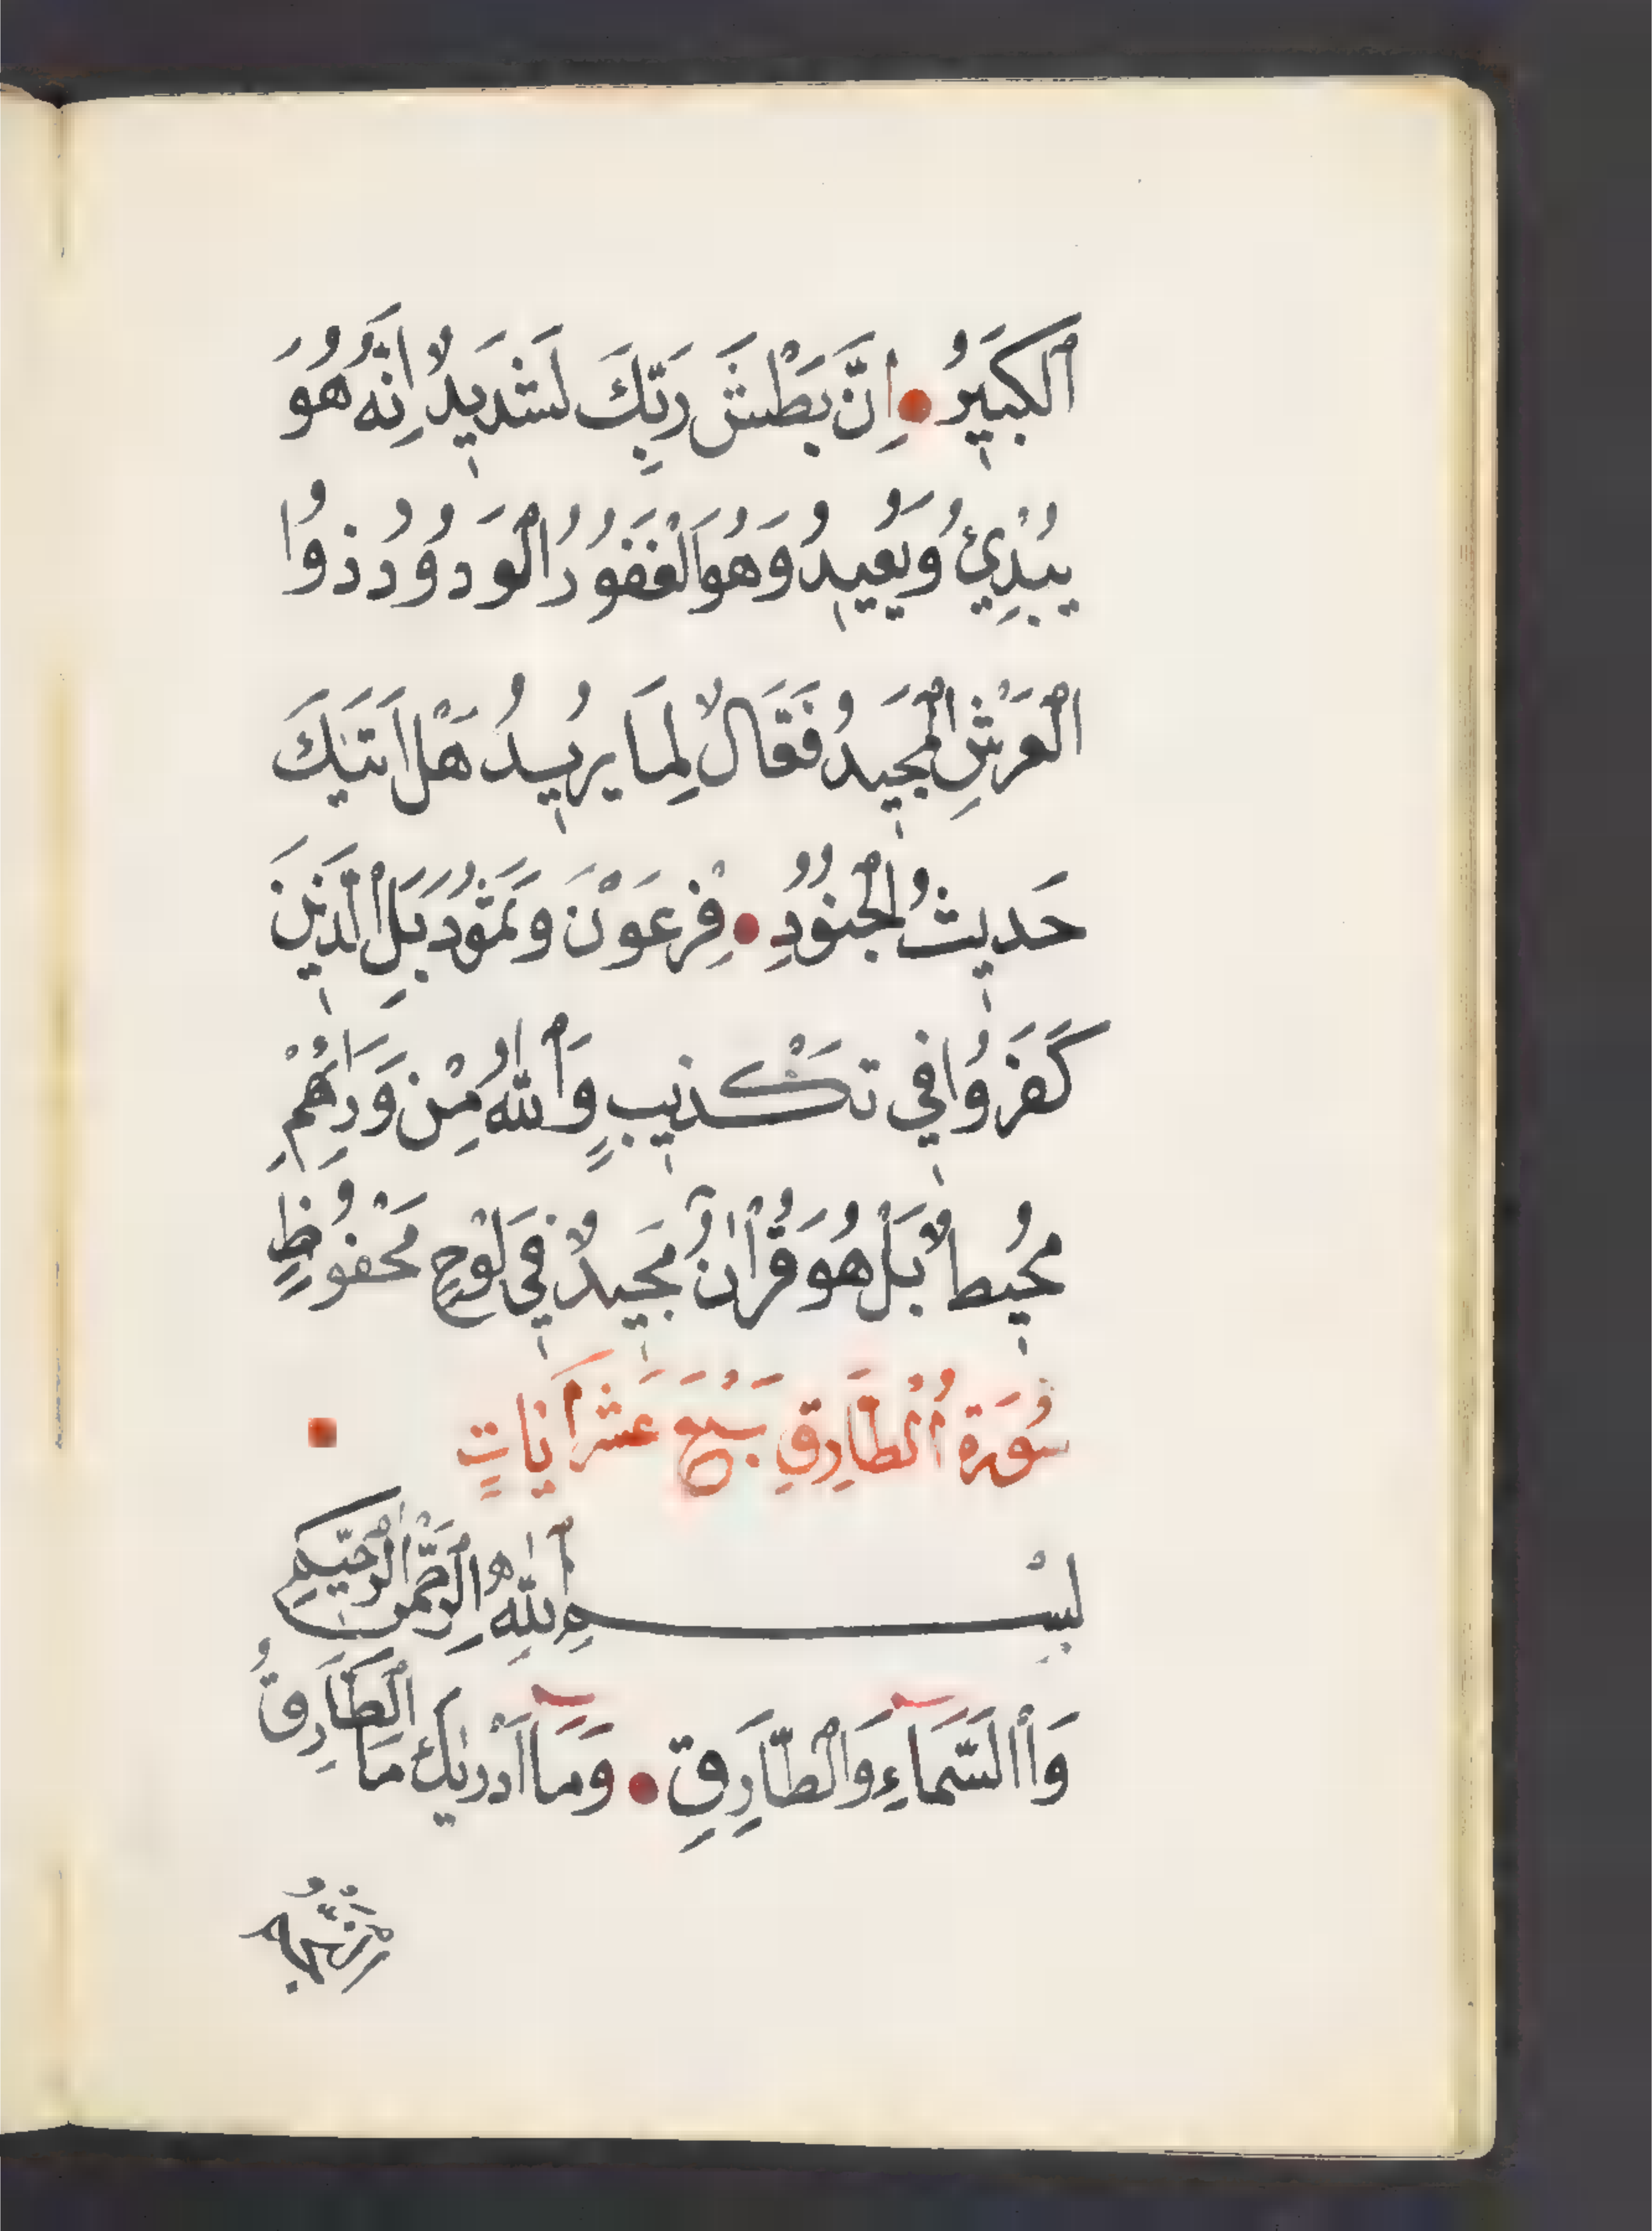 ٱلْكَبِيرُ اِنَّ بَطْشَ رَبِّكَ لَشَدِيدٌ اِنَّهُ هُوَ
يُبْدِئُ وَيُعِيدُ وَهُوَ ٱلْغَفُورُ ٱلْوَدُودُ ذُوا
ٱلْعَرْشِ ٱلْمَجِيدُ فَقَالٌ لِمَا يُرِيدُ هَلْ اَتَىٰكَ
حَدِيثُ ٱلْجُنُودِ فِرْعَوْنَ وَثَمُودَ بَلِ ٱلَّذِينَ
كَفَرُوا فِي تَكْذِيبٍ وَٱللَّهُ مِنْ وَرَائِهِمْ
مُحِيطٌ بَلْ هُوَ قُرْاٰنٌ مَجِيدٌ فِي لَوْحٍ مَحْفُوظٍ
سُورَةُ ٱلْطَّارِقِ سَبْعَ عَشَرَ اٰيَاتٍ
بِسْمِ ٱللَّهِ ٱلرَّحْمٰنِ ٱلرَّحِيمِ
وَاٱلسَّمَاءِ وَٱلْطَّارِقِ وَمَا اَدْرٰىكَ مَا ٱلْطَّارِقُ